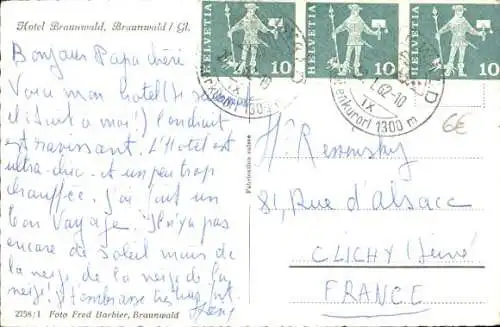 Hotel Braunwald, Braunwald / Gl.
Bonjour Papa chéri
Voici mon hôtel (4
(il suit à moi!) L'endroit
est ravissant. L'Hotel est
ultra-chic et un peu trop
chauffée. J'ai fait un
bon voyage. Il n'y a pas
encore de soleil mais de
la neige, de la neige de la
neige! J'embrasse très fort
2258/1 Foto Fred Barbier, Braunwald
Fabrication suisse
HELVETIA 10
HELVETIA 10
HELVETIA 10
62-10
IX
1300 m
6€
Mr Remensky
81, Rue d'Alsace
CLICHY (Seine)
FRANCE